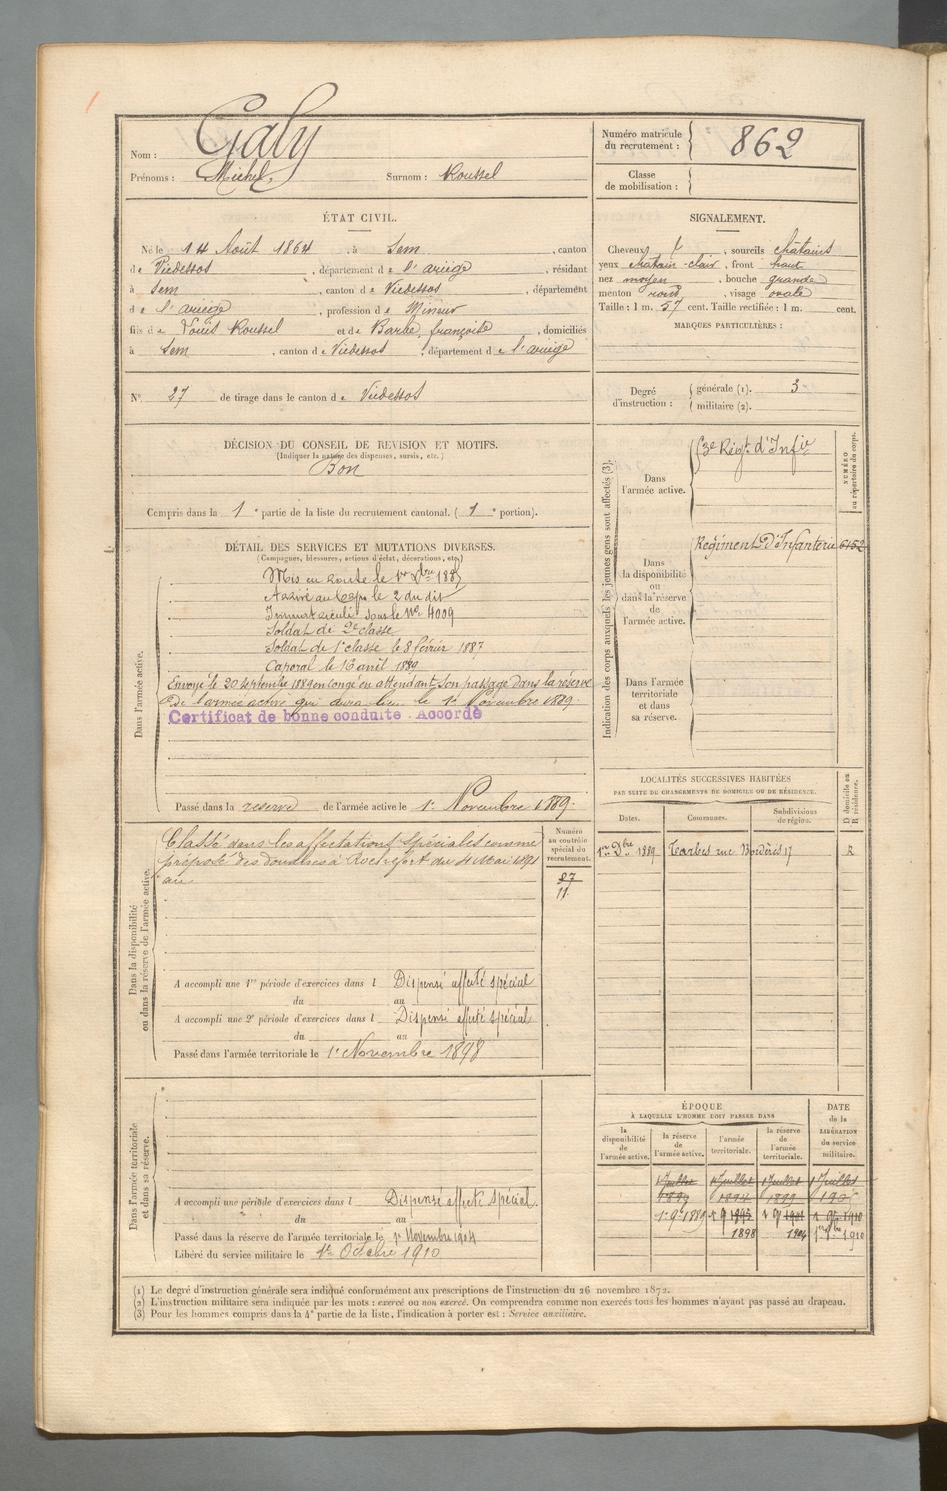 Nom : Galy
Prénoms : Michel, Surnom : Roussel
Numéro matricule du recrutement : 862
Classe de mobilisation :
ÉTAT CIVIL.
Né le 14 Août 1864, à Sem, canton
de Viedessos, département de l'ariège, résidant
à Sem, canton de Viedessos, département
de l'ariège, profession de Mineur
fils de Louis Roussel et de Barbe, françoise, domiciliés
à Sem, canton de Viedessos, département de l'ariège
SIGNALEMENT.
Cheveux, sourcils châtains
yeux chatain-clair, front haut
nez moyen, bouche grande
menton rond, visage ovale
Taille : 1 m. 57 cent. Taille rectifiée : 1 m. cent.
MARQUES PARTICULIÈRES :
N° 27 de tirage dans le canton de Viedessos
Degré d'instruction : générale (1). 3
militaire (2).
DÉCISION DU CONSEIL DE REVISION ET MOTIFS.
(Indiquer la nature des dispenses, sursis, etc.)
Bon
Compris dans la 1e partie de la liste du recrutement cantonal. (1e portion).
DÉTAIL DES SERVICES ET MUTATIONS DIVERSES.
(Campagnes, blessures, actions d'éclat, décorations, etc.)
Dans l'armée active.
Mis en route le 1er Xbre 1885
Arrivé au Corps le 2 du dit
Immatriculé sous le No 4009
Soldat de 2e classe
Soldat de 1e classe le 8 février 1887
Caporal le 16 avril 1889
Envoyé le 20 septembre 1889 en congé en attendant son passage dans la réserve
de l'armée active qui aura lieu le 1er Novembre 1889.
Certificat de bonne conduite Accordé
Passé dans la reserve de l'armée active le 1er Novembre 1889.
Indication des corps auxquels les jeunes gens sont affectés (3).
NUMÉRO au répertoire du corps.
Dans l'armée active.
3e Régt d'Infie
Dans la disponibilité ou dans la réserve de l'armée active.
Régiment d'Infanterie 6152
Dans l'armée territoriale et dans sa réserve.
LOCALITÉS SUCCESSIVES HABITÉES
PAR SUITE DE CHANGEMENTS DE DOMICILE OU DE RÉSIDENCE.
D domicile ou R résidence.
Dates. Communes. Subdivisions de région.
1889 Tarbes rue Bordères 17 R
Dans la disponibilité ou dans la réserve de l'armée active.
Numéro au contrôle spécial du recrutement.
Classé dans les affectations spéciales comme
préposé des douanes à Rochefort du 4 Mai 1891
au
87
11.
A accompli une 1re période d'exercices dans l Dispensé affecté spécial
du au
A accompli une 2e période d'exercices dans l Dispensé affecté spécial
du au
Passé dans l'armée territoriale le 1er Novembre 1898
ÉPOQUE
À LAQUELLE L'HOMME DOIT PASSER DANS
DATE de la LIBÉRATION du service militaire.
la disponibilité de l'armée active. la réserve de l'armée active. l'armée territoriale. la réserve de l'armée territoriale.
1 Juillet 1 Juillet 1 Juillet 1 Juillet
1898 1904 1910
Dans l'armée territoriale et dans sa réserve.
A accompli une période d'exercices dans l Dispensé affecté spécial.
du au
Passé dans la réserve de l'armée territoriale le 1er Novembre 1904
Libéré du service militaire le 1er Octobre 1910
(1) Le degré d'instruction générale sera indiqué conformément aux prescriptions de l'instruction du 26 novembre 1872.
(2) L'instruction militaire sera indiquée par les mots : exercé ou non exercé. On comprendra comme non exercés tous les hommes n'ayant pas passé au drapeau.
(3) Pour les hommes compris dans la 4e partie de la liste, l'indication à porter est : Service auxiliaire.